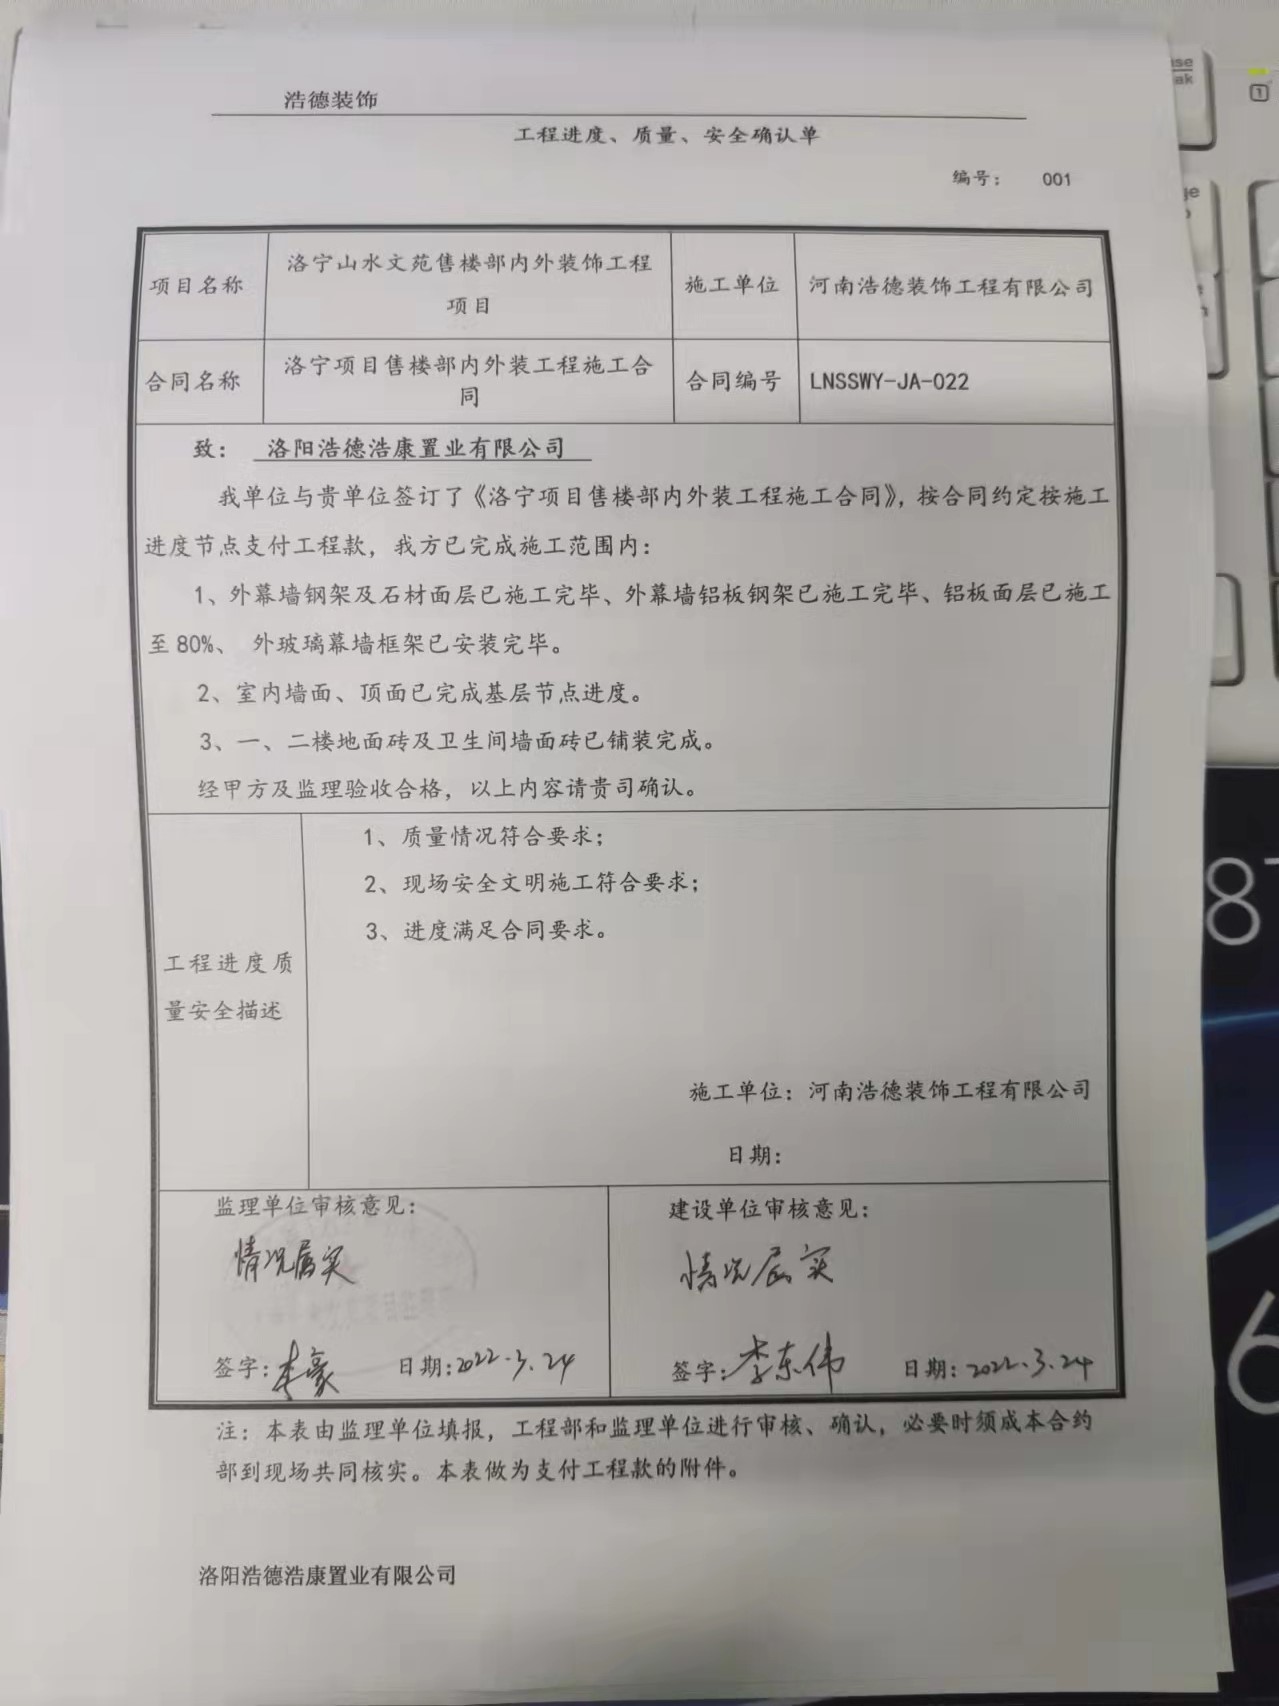 浩德装饰
工程进度、质量、安全确认单
编号： 001
项目名称
洛宁山水文苑售楼部内外装饰工程
项目
施工单位
河南浩德装饰工程有限公司
合同名称
洛宁项目售楼部内外装工程施工合
同
合同编号
LNSSWY-JA-022
致： 洛阳浩德浩康置业有限公司
我单位与贵单位签订了《洛宁项目售楼部内外装工程施工合同》，按合同约定按施工
进度节点支付工程款，我方已完成施工范围内：
1、外幕墙钢架及石材面层已施工完毕、外幕墙铝板钢架已施工完毕、铝板面层已施工
至80%、 外玻璃幕墙框架已安装完毕。
2、室内墙面、顶面已完成基层节点进度。
3、一、二楼地面砖及卫生间墙面砖已铺装完成。
经甲方及监理验收合格，以上内容请贵司确认。
工程进度质
量安全描述
1、质量情况符合要求；
2、现场安全文明施工符合要求；
3、进度满足合同要求。
施工单位：河南浩德装饰工程有限公司
日期：
监理单位审核意见：
情况属实
签字： 日期：2022.3.24
建设单位审核意见：
情况属实
签字：李东伟 日期：2022.3.24
注：本表由监理单位填报，工程部和监理单位进行审核、确认，必要时须成本合约
部到现场共同核实。本表做为支付工程款的附件。
洛阳浩德浩康置业有限公司
8
6